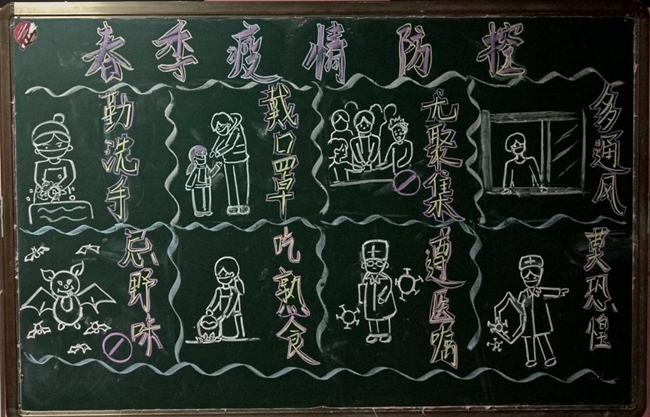 春季疫情防控
勤洗手
戴口罩
无聚集
多通风
忌野味
吃熟食
遵医嘱
莫恐惶